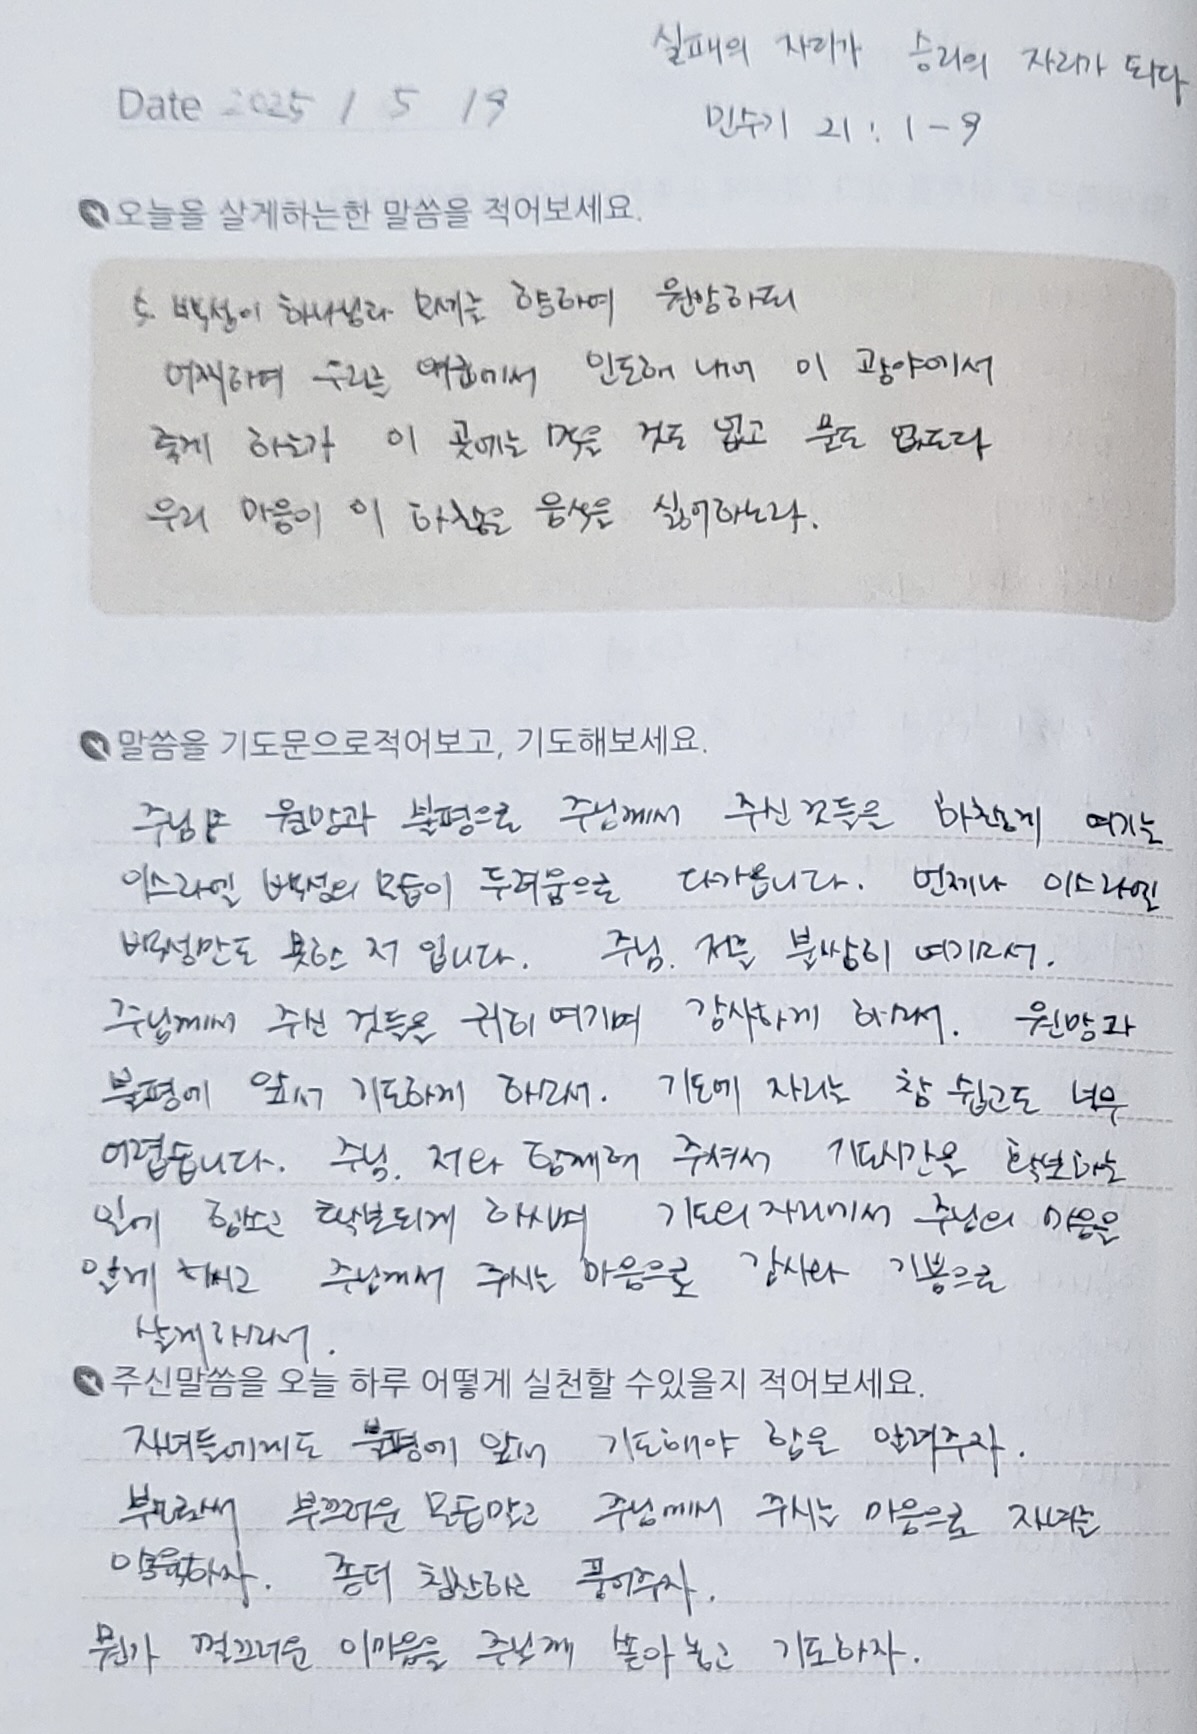 실패의 자리가 승리의 자리가 되다
Date 2025 / 5 19
민수기 21 : 1 - 9
오늘을 살게하는한 말씀을 적어보세요.
5. 백성이 하나님과 모세를 향하여 원망하되
어찌하여 우리를 애굽에서 인도해 내어 이 광야에서
죽게 하는가 이 곳에는 먹을 것도 없고 물도 없도다
우리 마음이 이 하찮은 음식을 싫어하노라.
말씀을 기도문으로적어보고, 기도해보세요.
주님 원망과 불평으로 주님께서 주신것들을 하찮게 여기는
이스라엘 백성의 모습이 두려움으로 다가옵니다. 언제나 이스라엘
백성만도 못한 저 입니다. 주님. 저를 불쌍히 여기소서.
주님께서 주신 것들을 귀히 여기며 감사하게 하소서. 원망과
불평에 앞서 기도하게 하소서. 기도에 자리는 참 쉽고도 너무
어렵습니다. 주님. 저와 함께해 주셔서 기도시간을 확보하는
일에 힘쓰고 확보되게 하시며 기도의 자리에서 주님의 마음을
알게 하시고 주님께서 주시는 마음으로 감사와 기쁨으로
살게하소서.
주신말씀을 오늘 하루 어떻게 실천할 수있을지 적어보세요.
자녀들에게도 불평에 앞서 기도해야 함을 알려주자.
부모로써 부끄러운 모습말고 주님께서 주시는 마음으로 자녀를
양육하자. 좀더 칭찬하고 품어주자.
뭔가 껄끄러운 이마음을 주님께 쏟아 놓고 기도하자.